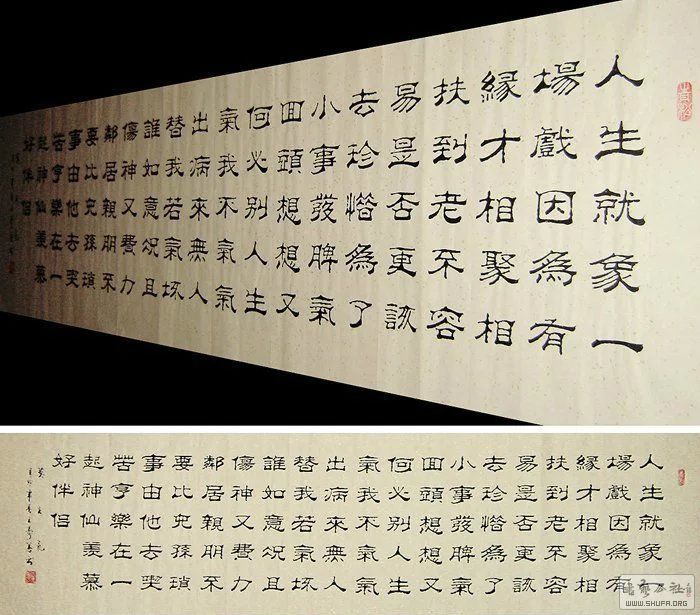 人生就象一
場戲因為有
緣才相聚相
扶到老不容
易是否更該
去珍惜為了
小事發脾氣
回頭想想又
何必別人生
氣我不氣氣
出病來無人
替我若氣坏
誰如意況且
傷神又費力
鄰居親朋不
要比兒孫瑣
事由他去
苦享樂在一
起神仙羨慕
好伴侶
人生就象一
場戲因為有
緣才相聚相
扶到老不容
易是否更該
去珍惜為了
小事發脾氣
回頭想想又
何必別人生
氣我不氣氣
出病來無人
替我若氣坏
誰如意況且
傷神又費力
鄰居親朋不
要比兒孫瑣
事由他去
苦享樂在一
起神仙羨慕
好伴侶
WWW.SHUFA.ORG